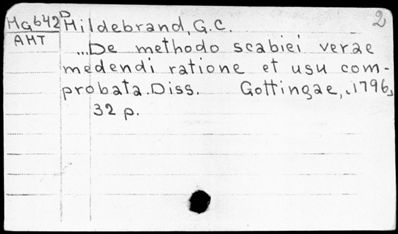 Ha642D Hildebrand, G.C. 2
AHT
...De methodo scabiei verae
medendi ratione et usu com-
probata. Diss. Gottingae, 1796,
32 p.